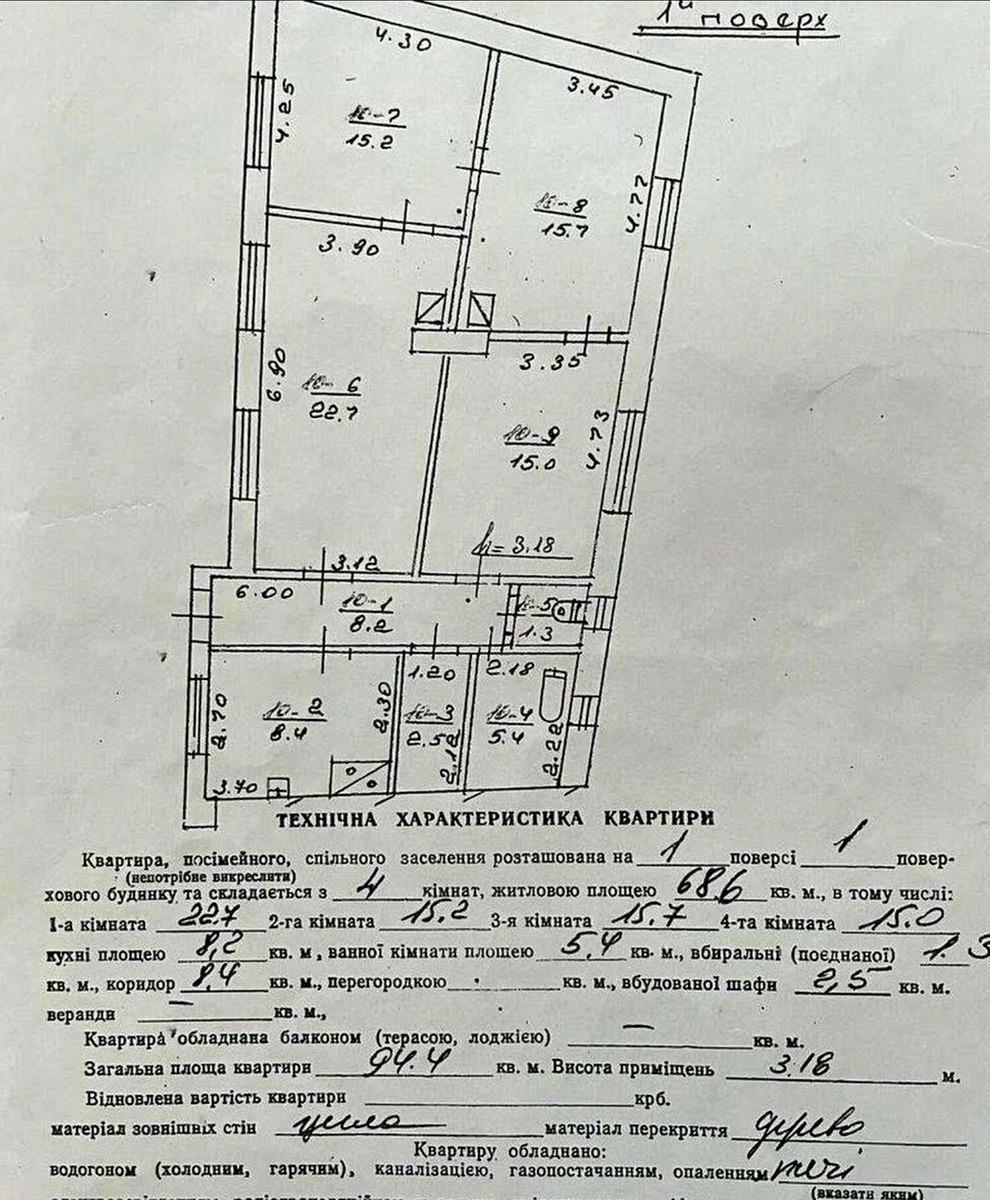 1й поверх
4.30
3.45
4.25
10-7
15.2
10-8
15.7
4.77
3.90
6.90
10-6
22.7
3.35
10-9
15.0
4.73
h=3.18
3.12
6.00
10-1
8.2
10-5
1.3
1.20
2.18
2.70
10-2
8.4
2.30
10-3
2.52
2.12
10-4
5.4
2.22
3.70
ТЕХНІЧНА ХАРАКТЕРИСТИКА КВАРТИРИ
Квартира, посімейного, спільного заселення розташована на 1 поверсі 1 повер-
(непотрібне викреслити)
хового будинку та складається з 4 кімнат, житловою площею 68.6 кв. м., в тому числі:
1-а кімната 22.7 2-га кімната 15.2 3-я кімната 15.7 4-та кімната 15.0
кухні площею 8,2 кв. м, ванної кімнати площею 5,4 кв. м., вбиральні (поєднаної) 1.3
кв. м., коридор 8,4 кв. м., перегородкою кв. м., вбудованої шафи 2,5 кв. м.
веранди — кв. м.,
Квартира обладнана балконом (терасою, лоджією) — кв. м.
Загальна площа квартири 94.4 кв. м. Висота приміщень 3.18 м.
Відновлена вартість квартири крб.
матеріал зовнішніх стін цегла матеріал перекриття дерево
Квартиру обладнано:
водогоном (холодним, гарячим), каналізацією, газопостачанням, опаленням печі
(вказати яким)